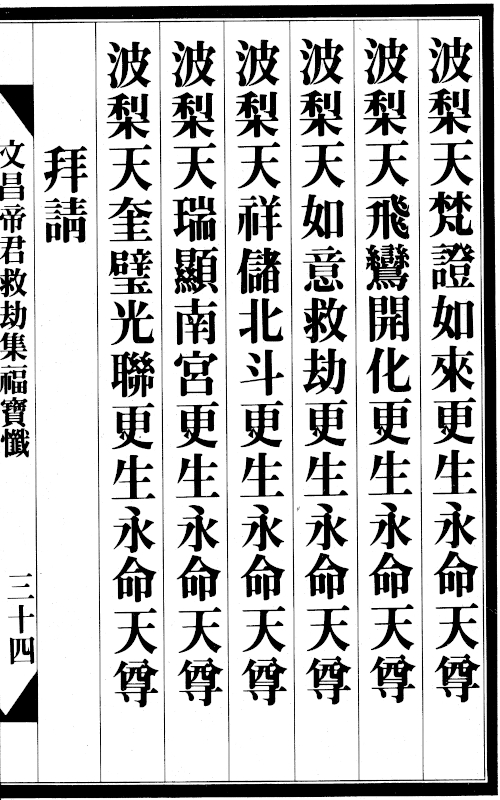 波梨天梵證如來更生永命天尊
波梨天飛鸞開化更生永命天尊
波梨天如意救劫更生永命天尊
波梨天祥儲北斗更生永命天尊
波梨天瑞顯南宮更生永命天尊
波梨天奎璧光聯更生永命天尊
拜請
文昌帝君救劫集福寶懺
三十四